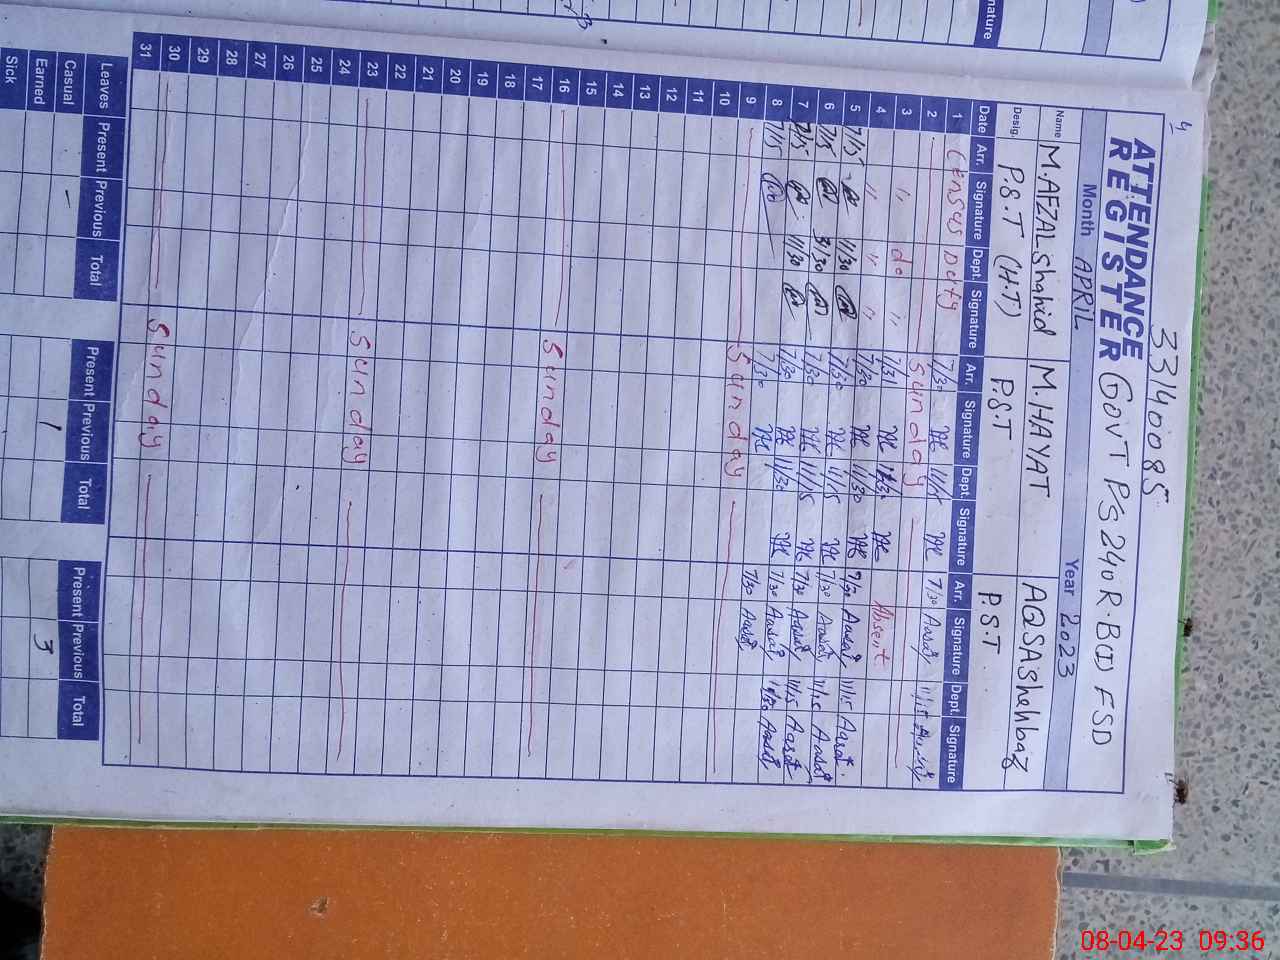 33140085
4
ATTENDANCE REGISTER GOVT P/S 240 R.B(I) FSD
Month APRIL Year 2023
Name M.AFZAL shahid M.HAYAT AQSA Shehbaz
Desig. P.S.T (H.T) P.S.T P.S.T
Date Arr. Signature Dept. Signature Arr. Signature Dept. Signature Arr. Signature Dept. Signature
1 Census Duty 7/30 11/15 7/30 11/15
2 Sunday
3 " do " 7/31
4 " " " 7/30 11/30 Absent
5 7/15 11/30 7/30 11/15 7/30 11/15
6 7/15 7/30 11/15 7/30 11/15
7 7/15 11/30 7/30 11/30 7/30 11/15
8 7/15 7/30 7/30
9 Sunday
10
11
12
13
14
15
16 Sunday
17
18
19
20
21
22
23 Sunday
24
25
26
27
28
29
30 Sunday
31
Leaves Present Previous Total Present Previous Total Present Previous Total
Casual – 1 3
Earned
Sick
nature
08-04-23 09:36